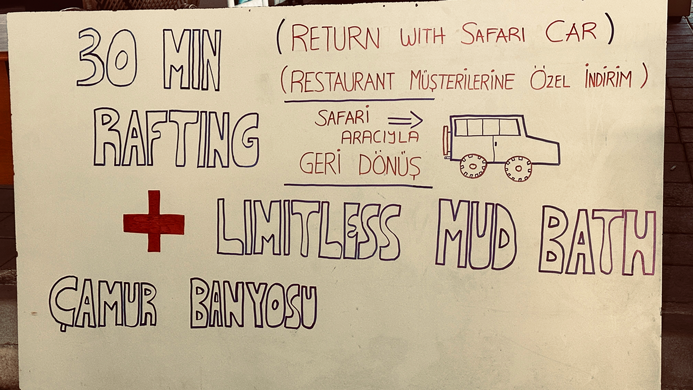 30 MIN
RAFTING
(RETURN WITH SAFARI CAR)
(RESTAURANT MÜŞTERİLERİNE ÖZEL İNDİRİM)
SAFARİ
ARACIYLA
GERİ DÖNÜŞ
+ LIMITLESS MUD BATH
ÇAMUR BANYOSU